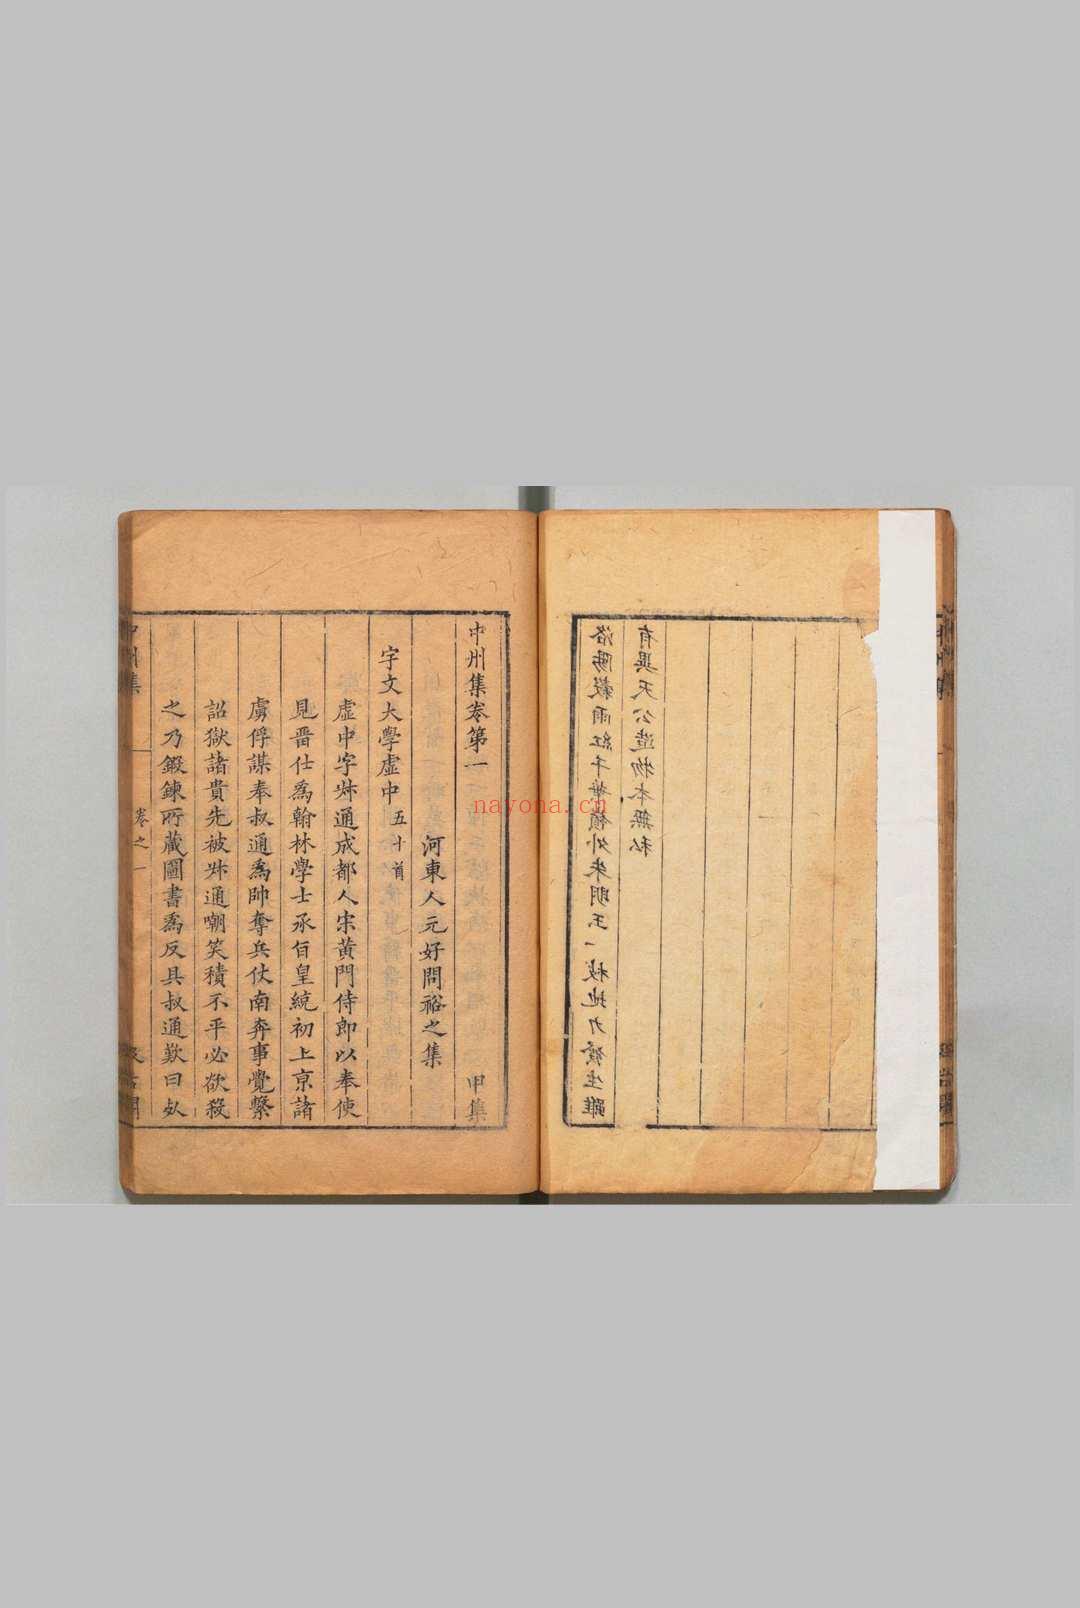 洛陽穀雨紅千葉嶺外朱明玉一枝地力發生雖
有異天公造物本無私
中州集卷第一 甲集
河東人元好問裕之集
宇文大學虛中 五十首
虛中字叔通成都人宋黃門侍郎以奉使
見畱仕爲翰林學士承旨皇統初上京諸
虜俘謀奉叔通爲帥奪兵仗南奔事覺繫
詔獄諸貴先被叔通嘲笑積不平必欲殺
之乃鍛鍊所藏圖書爲反具叔通歎曰死
中州集 卷之一
nayona.cn